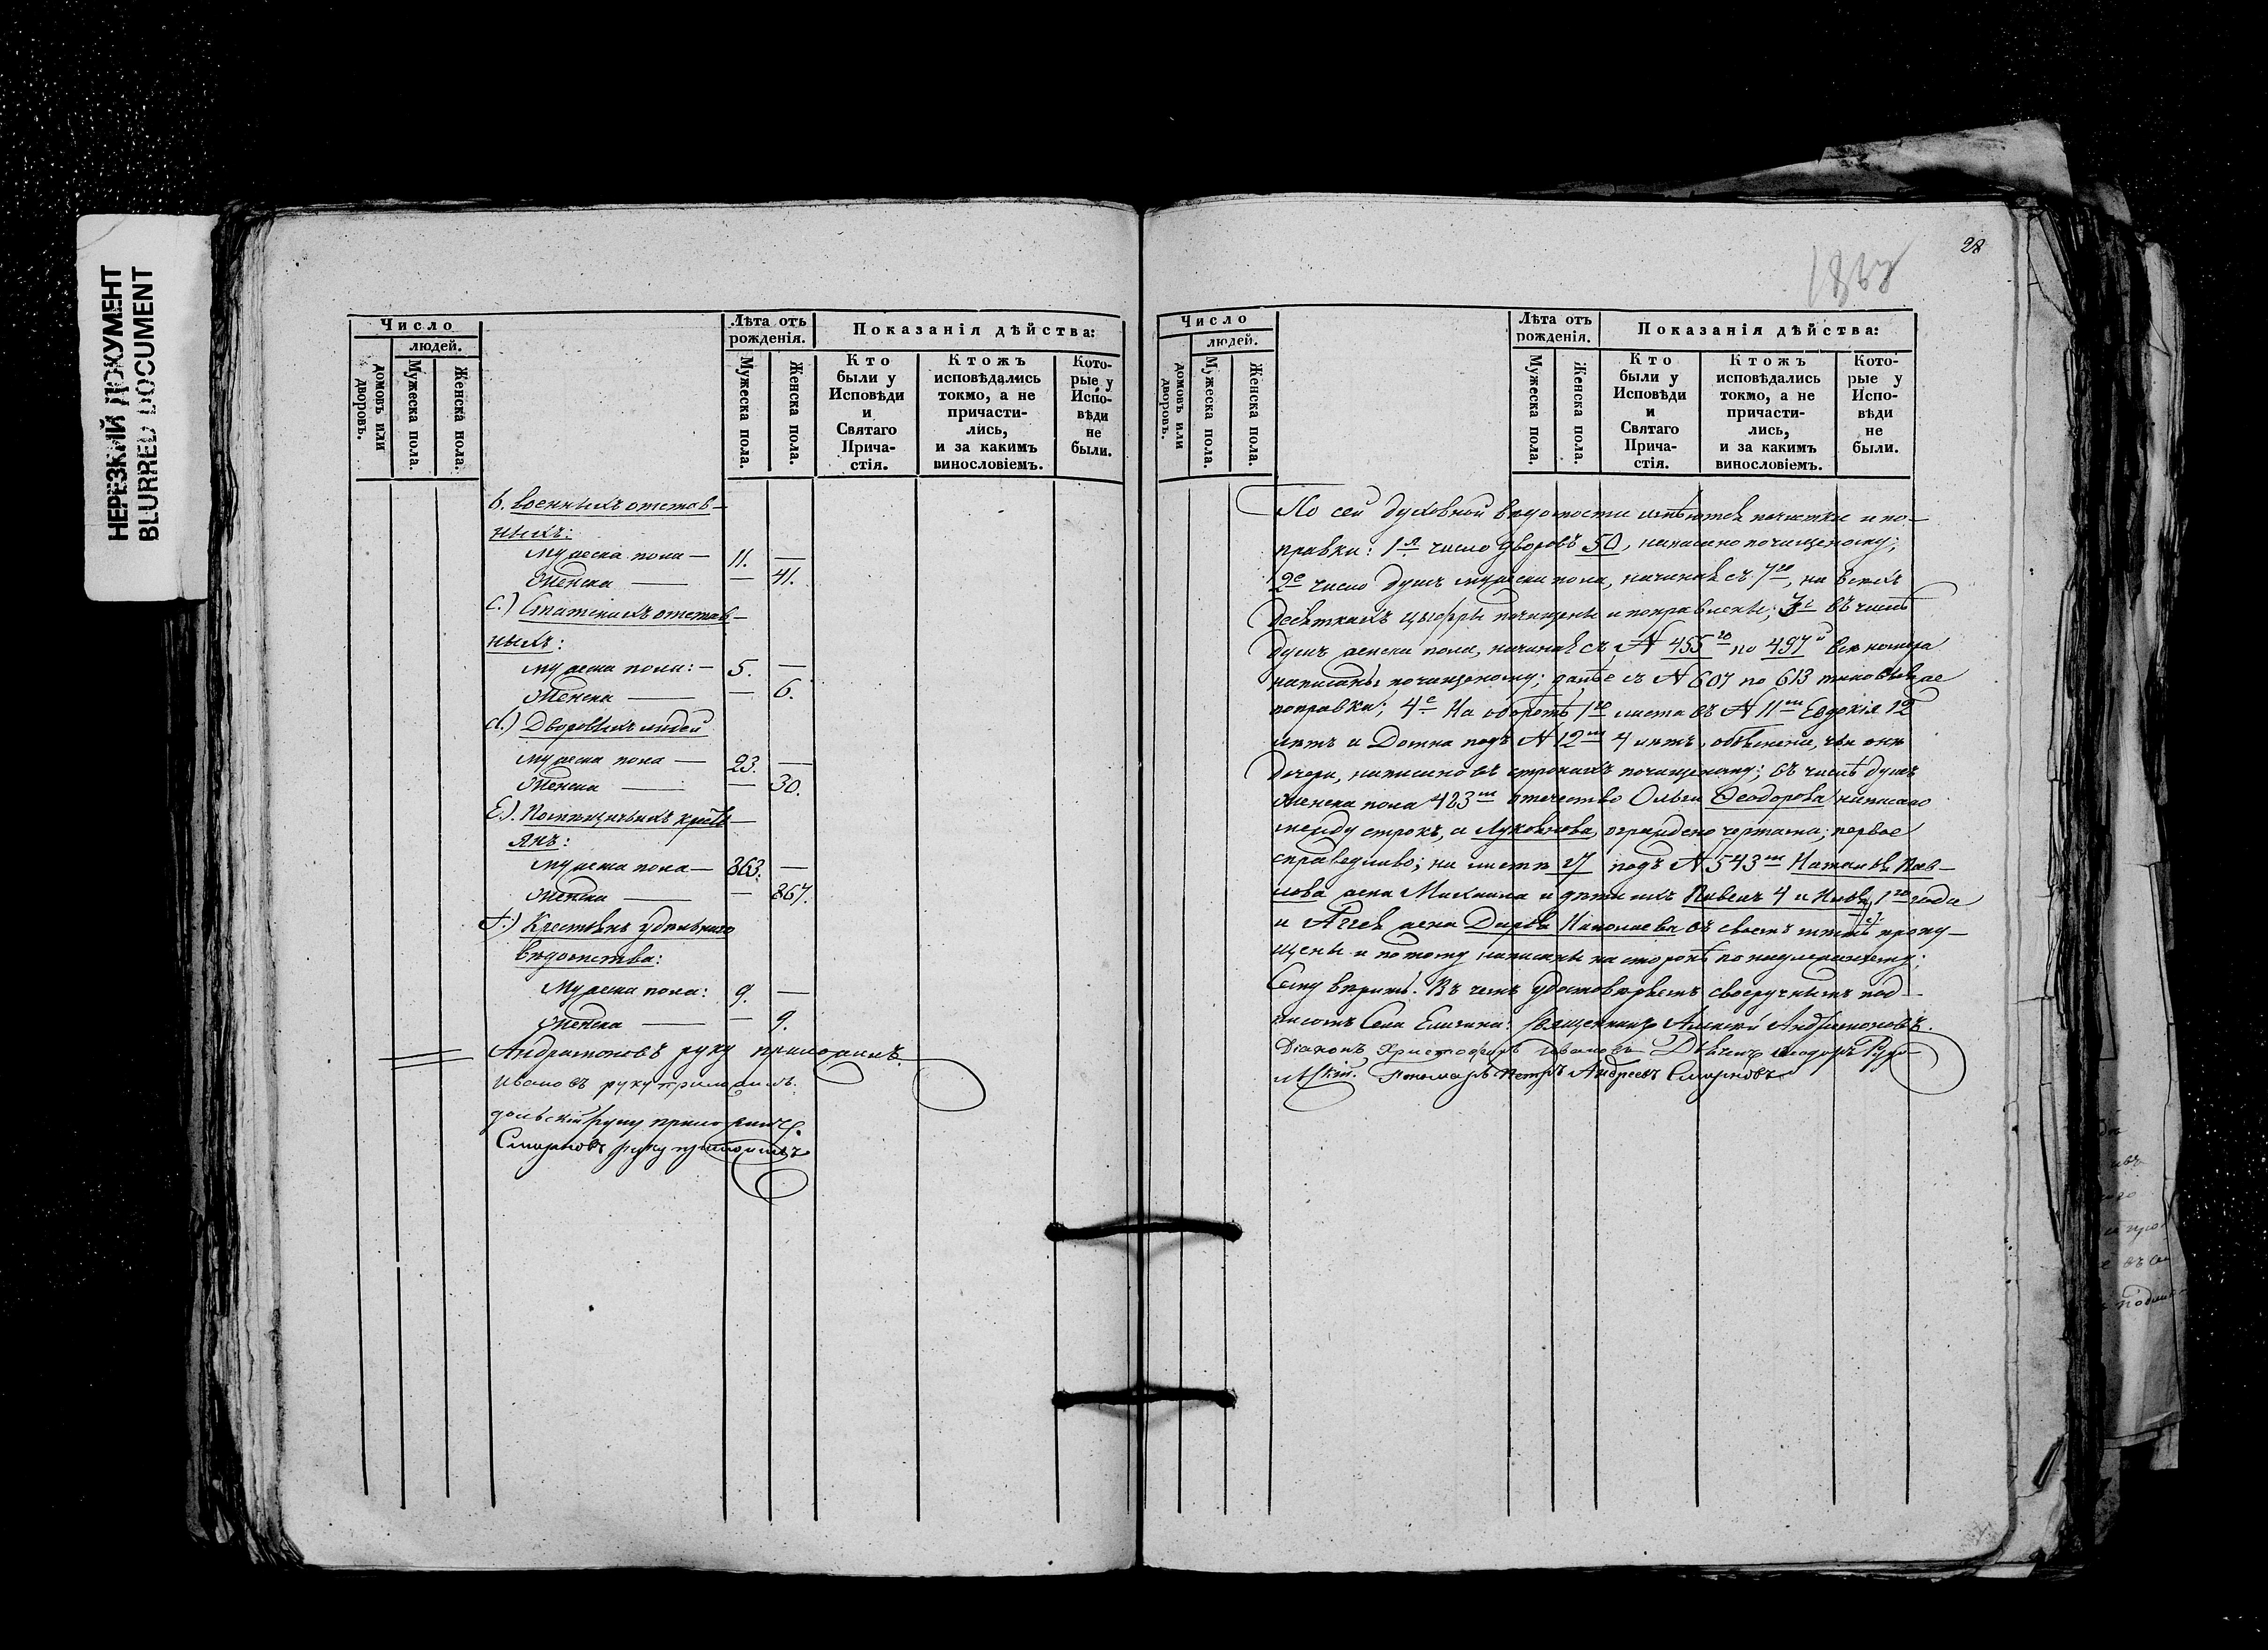 НЕРЕЗКИЙ ДОКУМЕНТ
BLURRED DOCUMENT
Число
людей.
домовъ или дворовъ.
Мужеска пола.
Женска пола.
Лѣта отъ рожденія.
Мужеска пола.
Женска пола.
Показанія дѣйства:
Кто были у Исповѣди и Святаго Причастія.
Ктожъ исповѣдались токмо, а не причастились, и за какимъ винословіемъ.
Которые у Исповѣди не были.
b. военныхъ отстав-
ныхъ:
мужеска пола — 11. —
Женска — — 41.
c.) Статскихъ отстав-
ныхъ:
мужеска пола: — 5. —
Женска — — 6.
d.) Дворовыхъ людей
мужеска пола — 23. —
Женска — — 30.
E.) Помѣщичьихъ кресть-
янъ:
мужеска пола — 863. —
Женска — — 867.
f.) Крестьянъ удѣльнаго
вѣдомства:
Мужеска пола: 9. —
Женска — — 9.
Андрамоновъ руку приложилъ.
Ивановъ руку приложилъ.
дольскій руку приложилъ.
Смирновъ руку приложилъ
1867
28
Число
людей.
домовъ или дворовъ.
Мужеска пола.
Женска пола.
Лѣта отъ рожденія.
Мужеска пола.
Женска пола.
Показанія дѣйства:
Кто были у Исповѣди и Святаго Причастія.
Ктожъ исповѣдались токмо, а не причастились, и за какимъ винословіемъ.
Которые у Исповѣди не были.
По сей духовной вѣдомости имѣются почистки и по-
правки: 1я число дворовъ 50, написано почищеному;
2е число душъ мужеска пола, начиная съ 7го, на всѣхъ
десяткахъ цыфры почищены и поправлены; 3е въ числѣ
душъ женска пола, начиная съ № 455го по 497й всѣ номера
написаны почищеному; далѣе съ № 607 по 613 таковыя же
поправки; 4е На оборотѣ 1го листа въ № 11м Евдокія 12
лѣтъ и Домна подъ № 12м 4 лѣтъ, объясненіе, чьи онѣ
дочери, написано въ строкахъ почищеному; въ числѣ душъ
женска пола 423м отечество Ольги Ѳеодорова написано
между строкъ, а Лукоянова ограждено чертами; первое
справедливо; на листѣ 27 подъ № 543м Наталья Пав-
лова жена Михаила и дѣти ихъ Павелъ 4 и 1го года
и Агея жена Дарья Николаева въ своемъ мѣстѣ пропу-
щены и потому написаны на сторонѣ
Семy вѣрить. Въ чемъ удостовѣряемъ своеручнымъ под-
писомъ Села священникъ Алексѣй Андрамоновъ.
Діаконъ Христофоръ Ивановъ Дьячекъ Ѳеодоръ
Пономарь Петръ Андреевъ Смирновъ